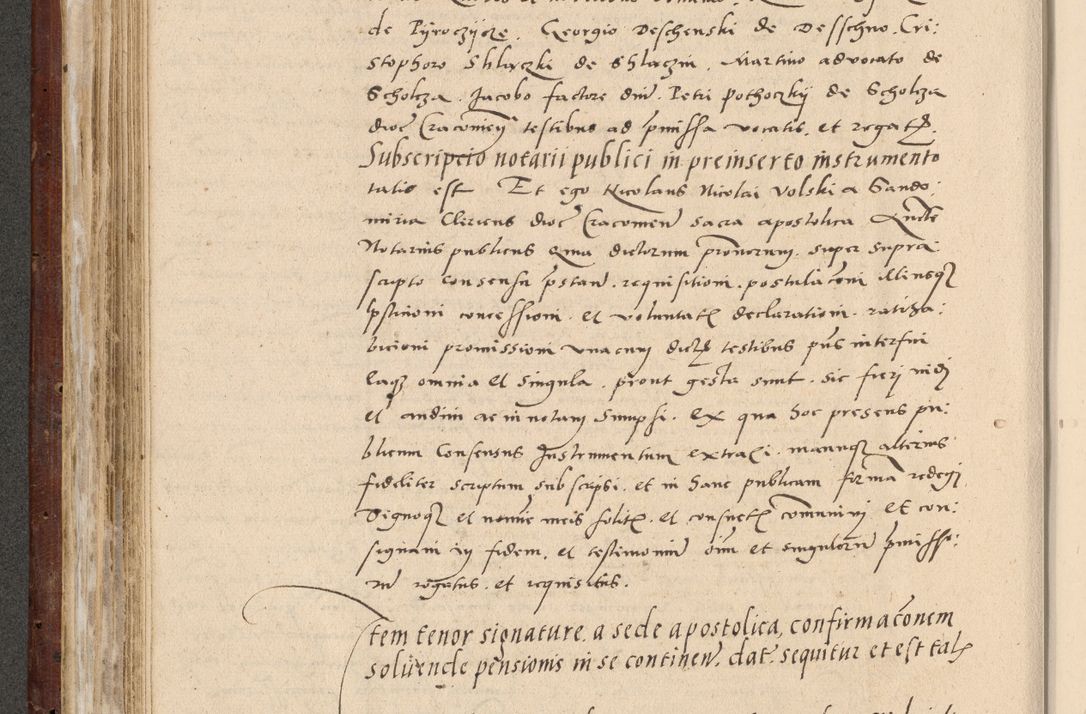 de Pyroczycze. Georgio Deschenski de Desschno. Cri:
stophoro Shlączki de Shlaczin. Martino advocato de
Scholcza. Jacobo factore dni. Petri Pothoczkij de Scholza
dioc Cracoviens testibus ad pmissa vocatis. et rogatis.
Subscriptio notarii publici in preinserto instrumento
talis est Et ego Nicolaus Nicolai Volski a Sando:
miria Clericus dioc Cracovien sacra apostolica aucte
Notarius publicus quia dictorum super supra
scripto consensu pstan. requisitioni. postulaconi illiusqz
pstitioni concessioni. et voluntatis declarationi. ratiha:
bicioni promissioni unacum dictis testibus pns interfui
eaqz omnia et singula. prout gesta sunt. sic fieri vidi
et audivi ac in notam sumpsi. ex qua hoc presens pu:
blicum Consensus Instrumentum extraxi. manuqz alterius
fideliter scriptum subscripsi. et in hanc publicam formam redegi
Signoqz et nomie meis solitis. et consuetis communivi et con:
signavi in fidem. et testimonium oim et singulorum pmisso:
rum rogatus. et requisitus.
Item tenor signature. a sede apostolica, confirmaconem
solvende pensionis in se continen. dat. sequitur et est talis